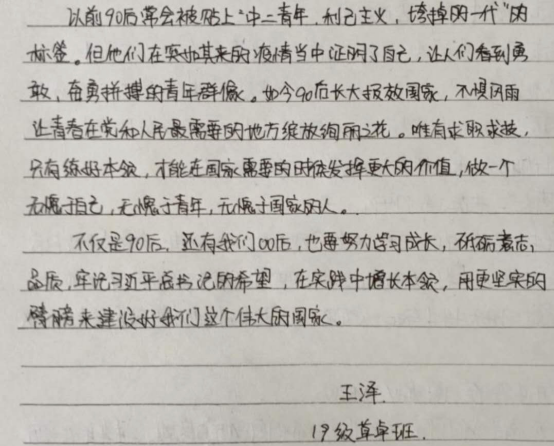 以前90后常会被贴上"中二青年,利己主义,垮掉的一代"的
标签。但他们在突如其来的疫情当中证明了自己,让人们看到勇
敢,奋勇拼搏的青年群像。如今90后长大报效国家,不惧风雨
让青春在党和人民最需要的地方绽放绚丽之花。唯有求职求技,
只有练好本领,才能在国家需要的时候发挥更大的价值,做一个
无愧于自己,无愧于青年,无愧于国家的人。
不仅是90后,还有我们00后,也要努力学习成长,砥砺意志,
品质,牢记习近平总书记的希望,在实践中增长本领,用更坚实的
臂膀来建设好我们这个伟大的国家。
王泽
19级草卓班